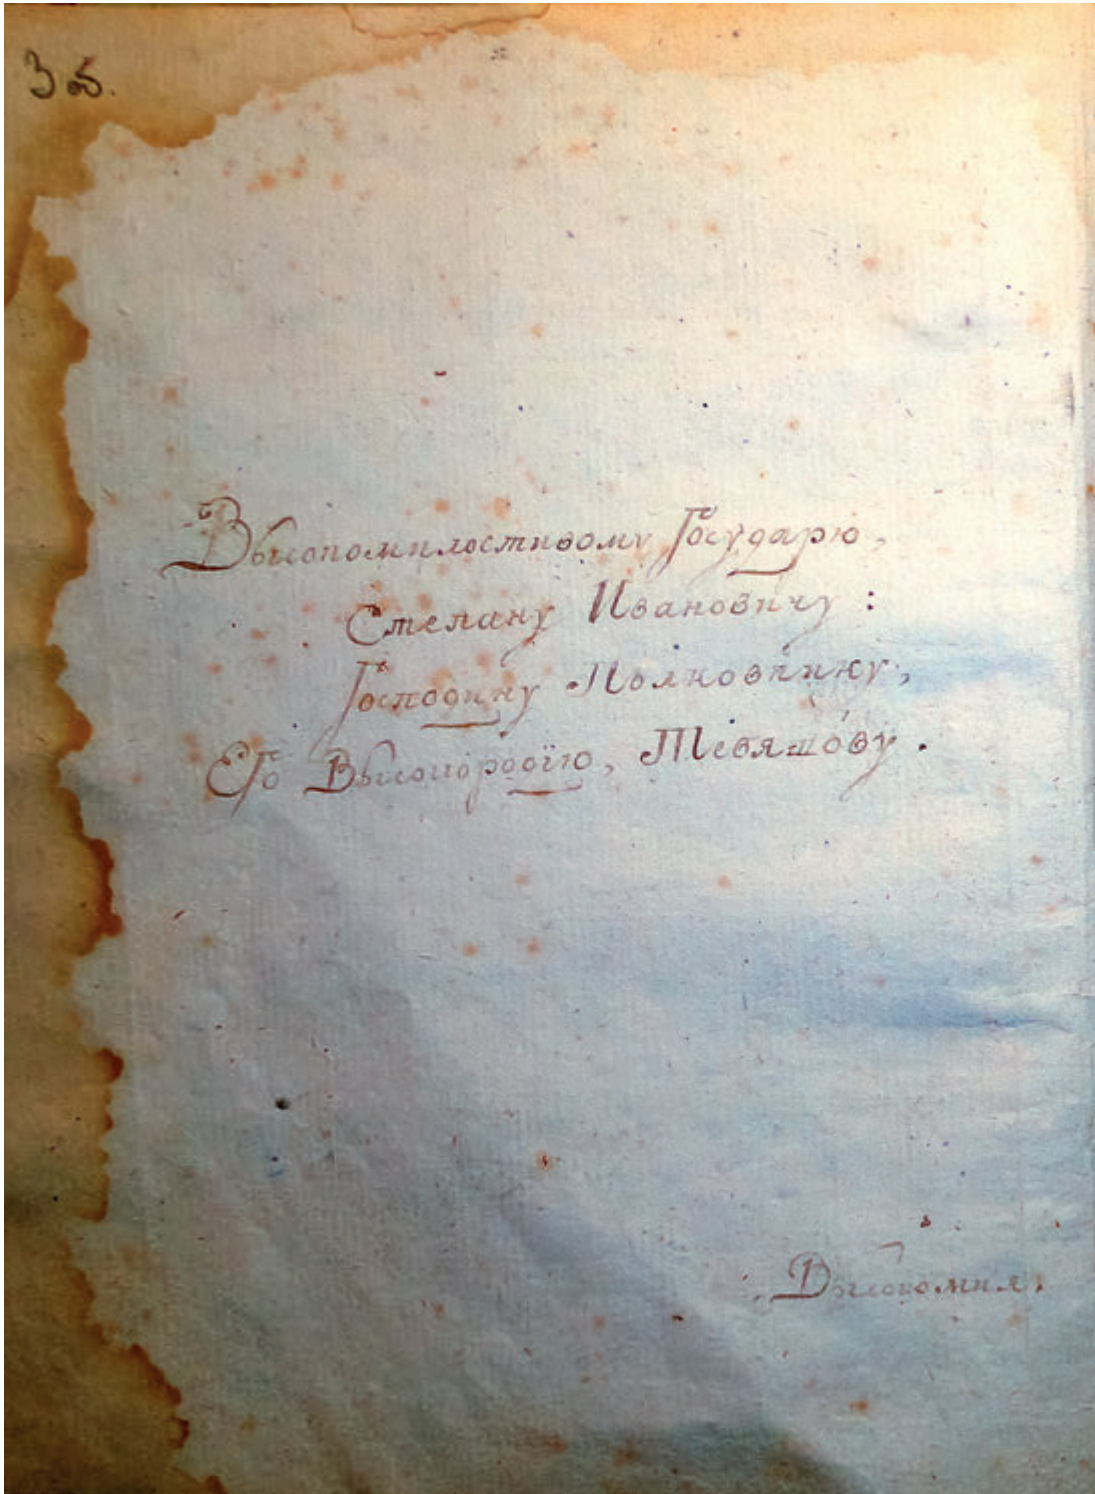 Высокомилостивому Государю,
Степану Ивановичу:
Господину Полковнику,
Его Высокородїю, Тевяшóву.
Высокомил.